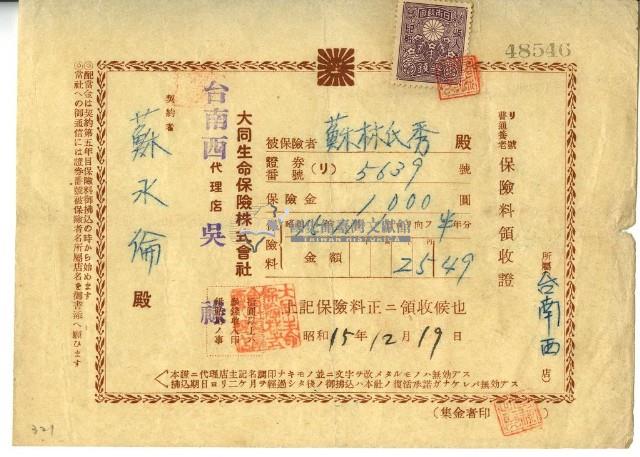 48546
リ號
普通養老 保險料領收證
所屬 台南西 店
被保險者 蘇林氏秀 殿
證券番號 (リ) 5639 號
保險金 1000 圓
金額 2549
上記保險料正ニ領收候也
昭和15年12月19日
大同生命保險株式會社
台南西代理店 吳
契約者
蘇水倫 殿
大同生命保險株式會社
臺灣文獻館
TAIWAN HISTORICA
◎配當金は契約第五年目保險料御拂込の時から始めます
◎當社への御通信には證券番號被保險者名所屬店名を御書添へ願ひます
本證ニ代理店主記名調印ナキモノ並ニ文字ヲ改メタルモノハ無効アス
拂込期日ヨリ二ケ月ヲ經過シタ後ノ御拂込ハ本社ノ復活承諾ガナケレバ無効アス
(集金者印)
321